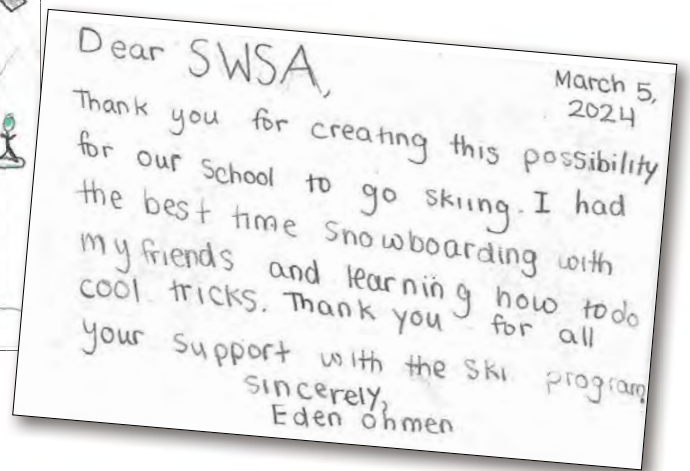 Dear SWSA,
March 5,
2024
Thank you for creating this possibility
for our school to go skiing. I had
the best time snowboarding with
my friends and learning how to do
cool tricks. Thank you for all
your support with the ski program
Sincerely,
Eden Ohmen